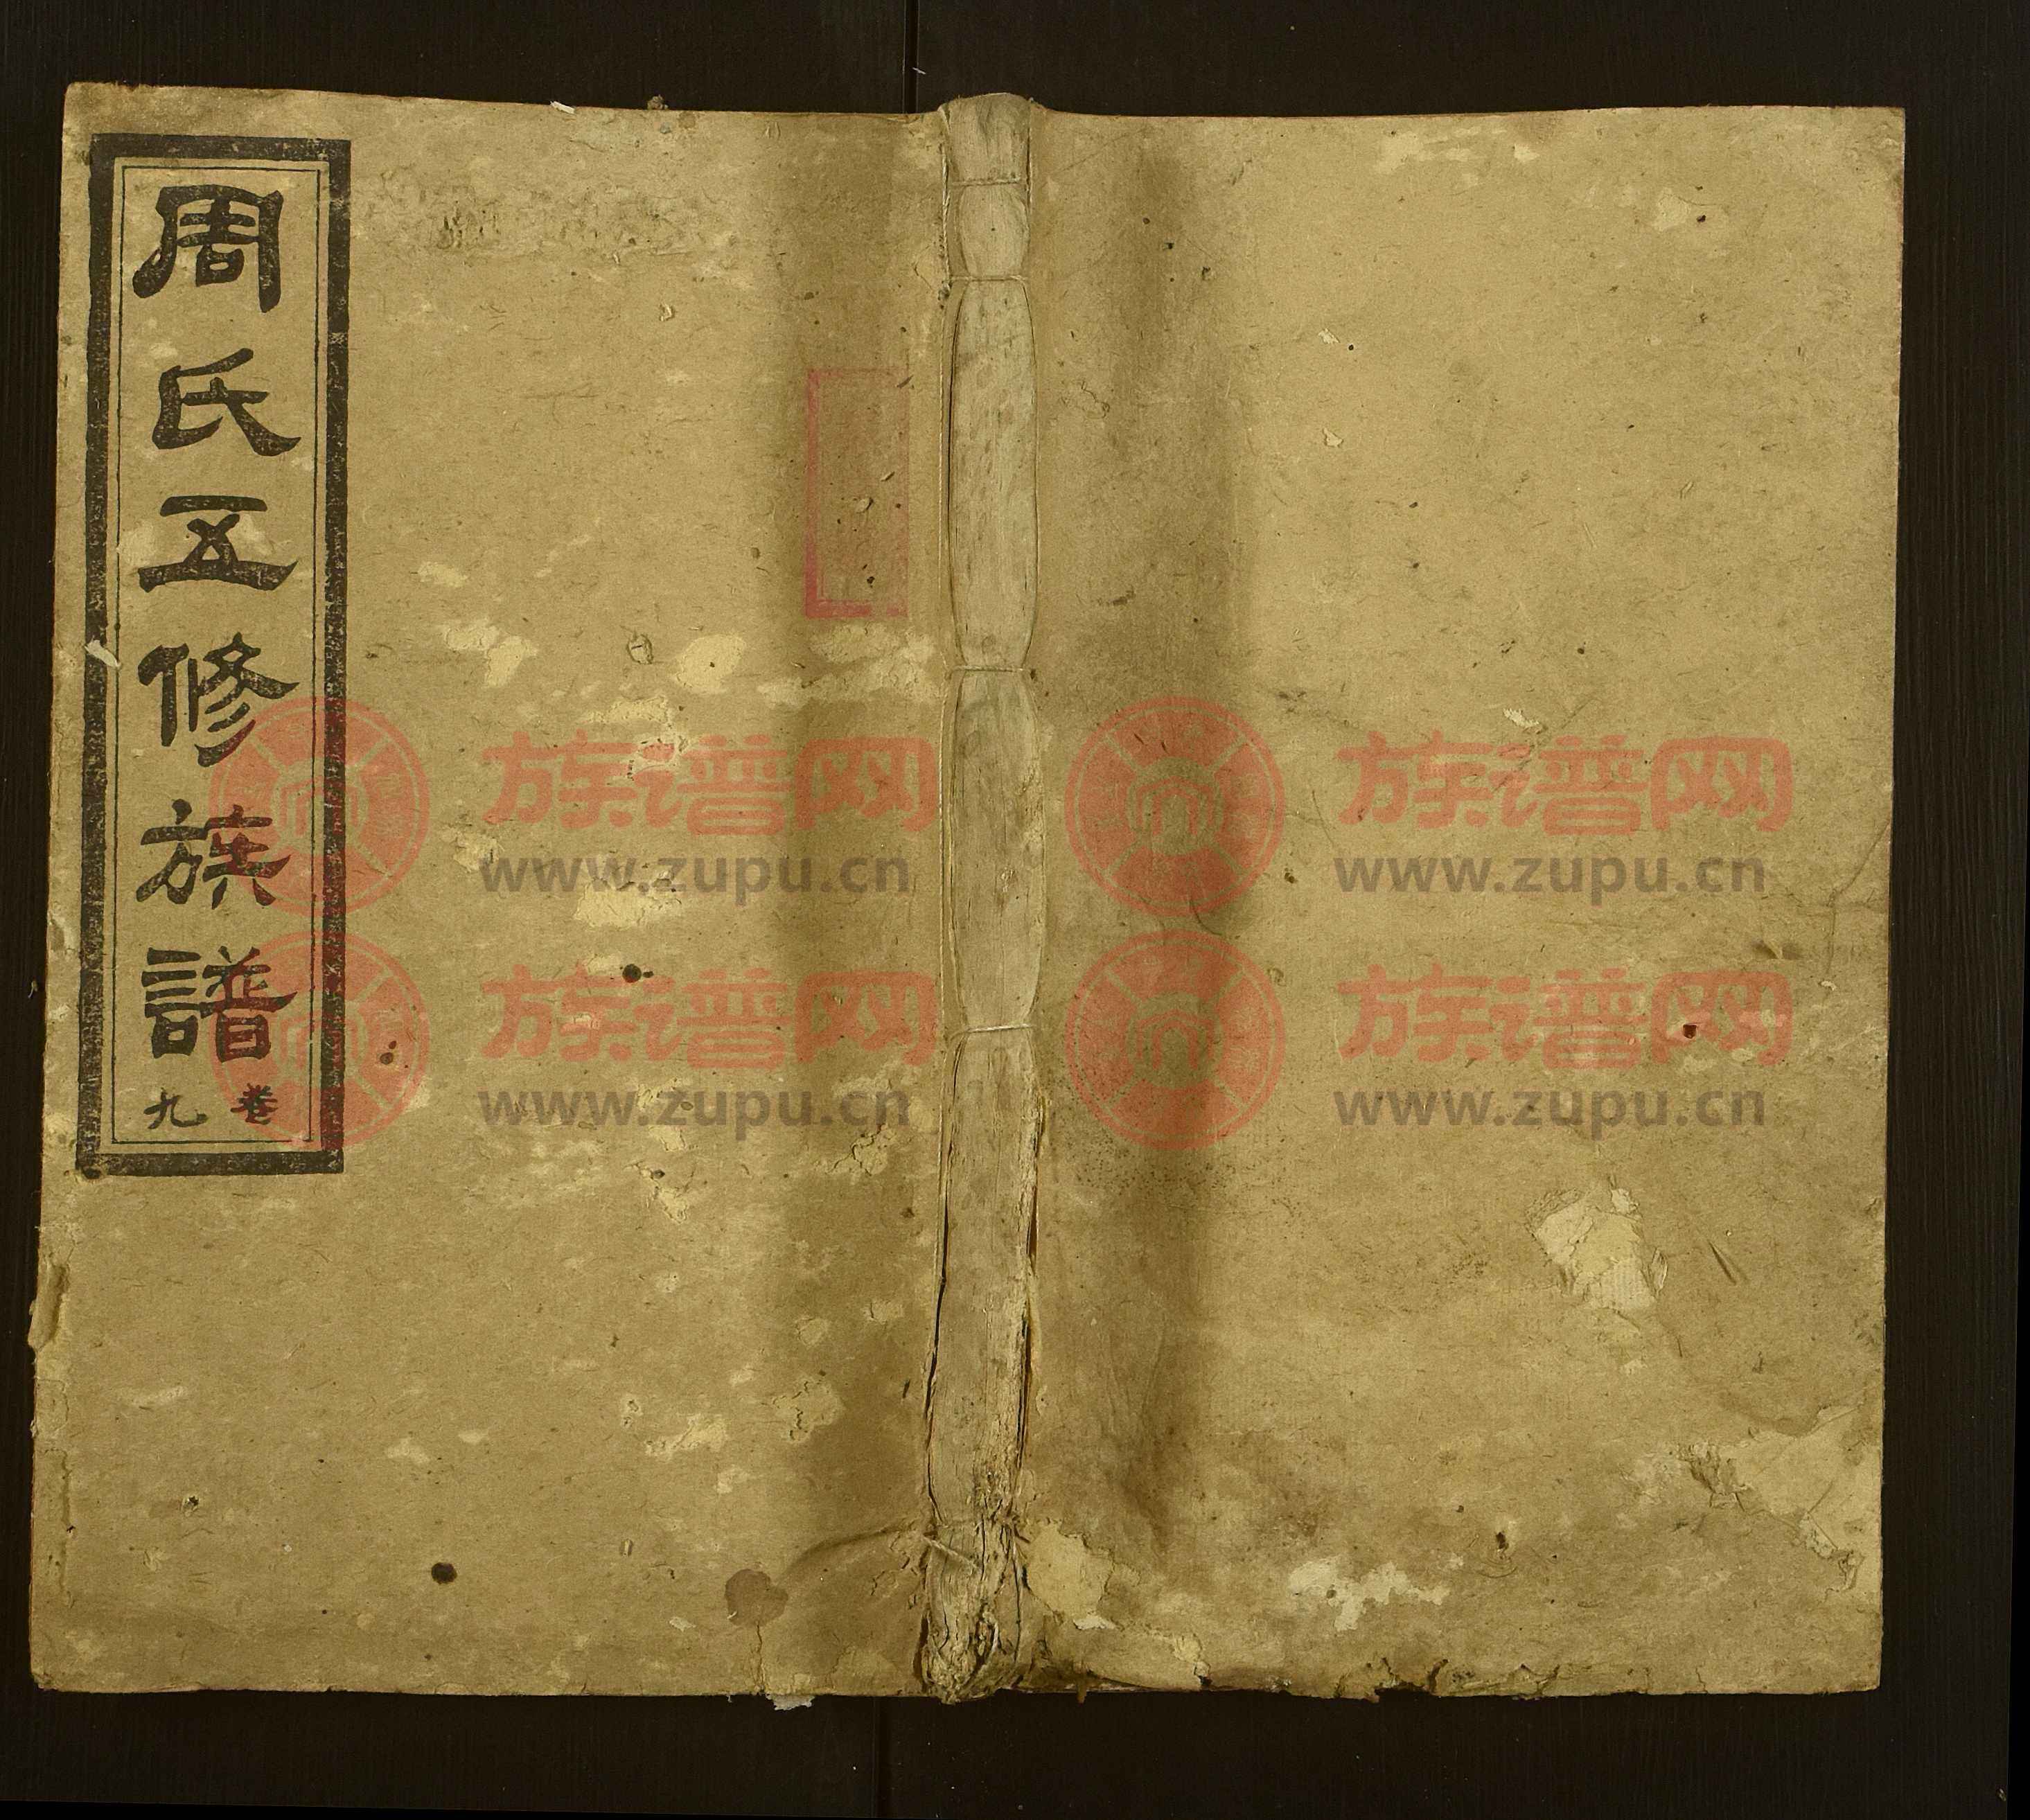 周氏五修族譜
卷九
族谱网 族谱网
www.zupu.cn www.zupu.cn
族谱网 族谱网
www.zupu.cn www.zupu.cn